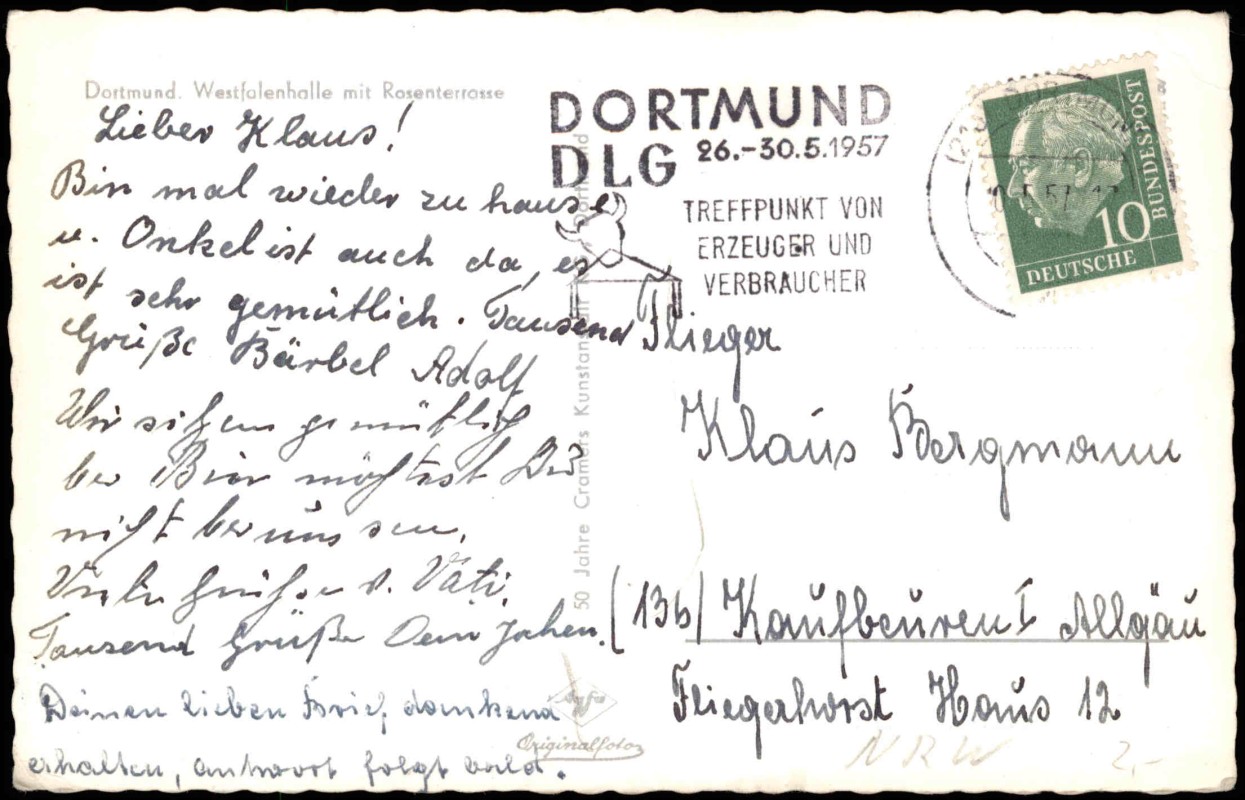 Dortmund. Westfalenhalle mit Rosenterrasse
Lieber Klaus!
Bin mal wieder zu hause
u. Onkel ist auch da, es
ist sehr gemütlich. Tausend
Grüße Bärbel Adolf
Wir sitzen gemütlich
bei Bier möchtest Du
nicht bei uns sein.
Viele Grüße v. Vati.
Tausend Grüße Dein Jochen.
Deinen lieben Brief dankend
erhalten, antwort folgt bald.
50 Jahre Cramers Kunstanstalt
Agfa
Originalfoto
DORTMUND
DLG 26.-30.5.1957
TREFFPUNKT VON
ERZEUGER UND
VERBRAUCHER
10
DEUTSCHE
BUNDESPOST
Flieger
Klaus Bergmann
(13b) Kaufbeuren I Allgäu
Fliegerhorst Haus 12
NRW 2,-